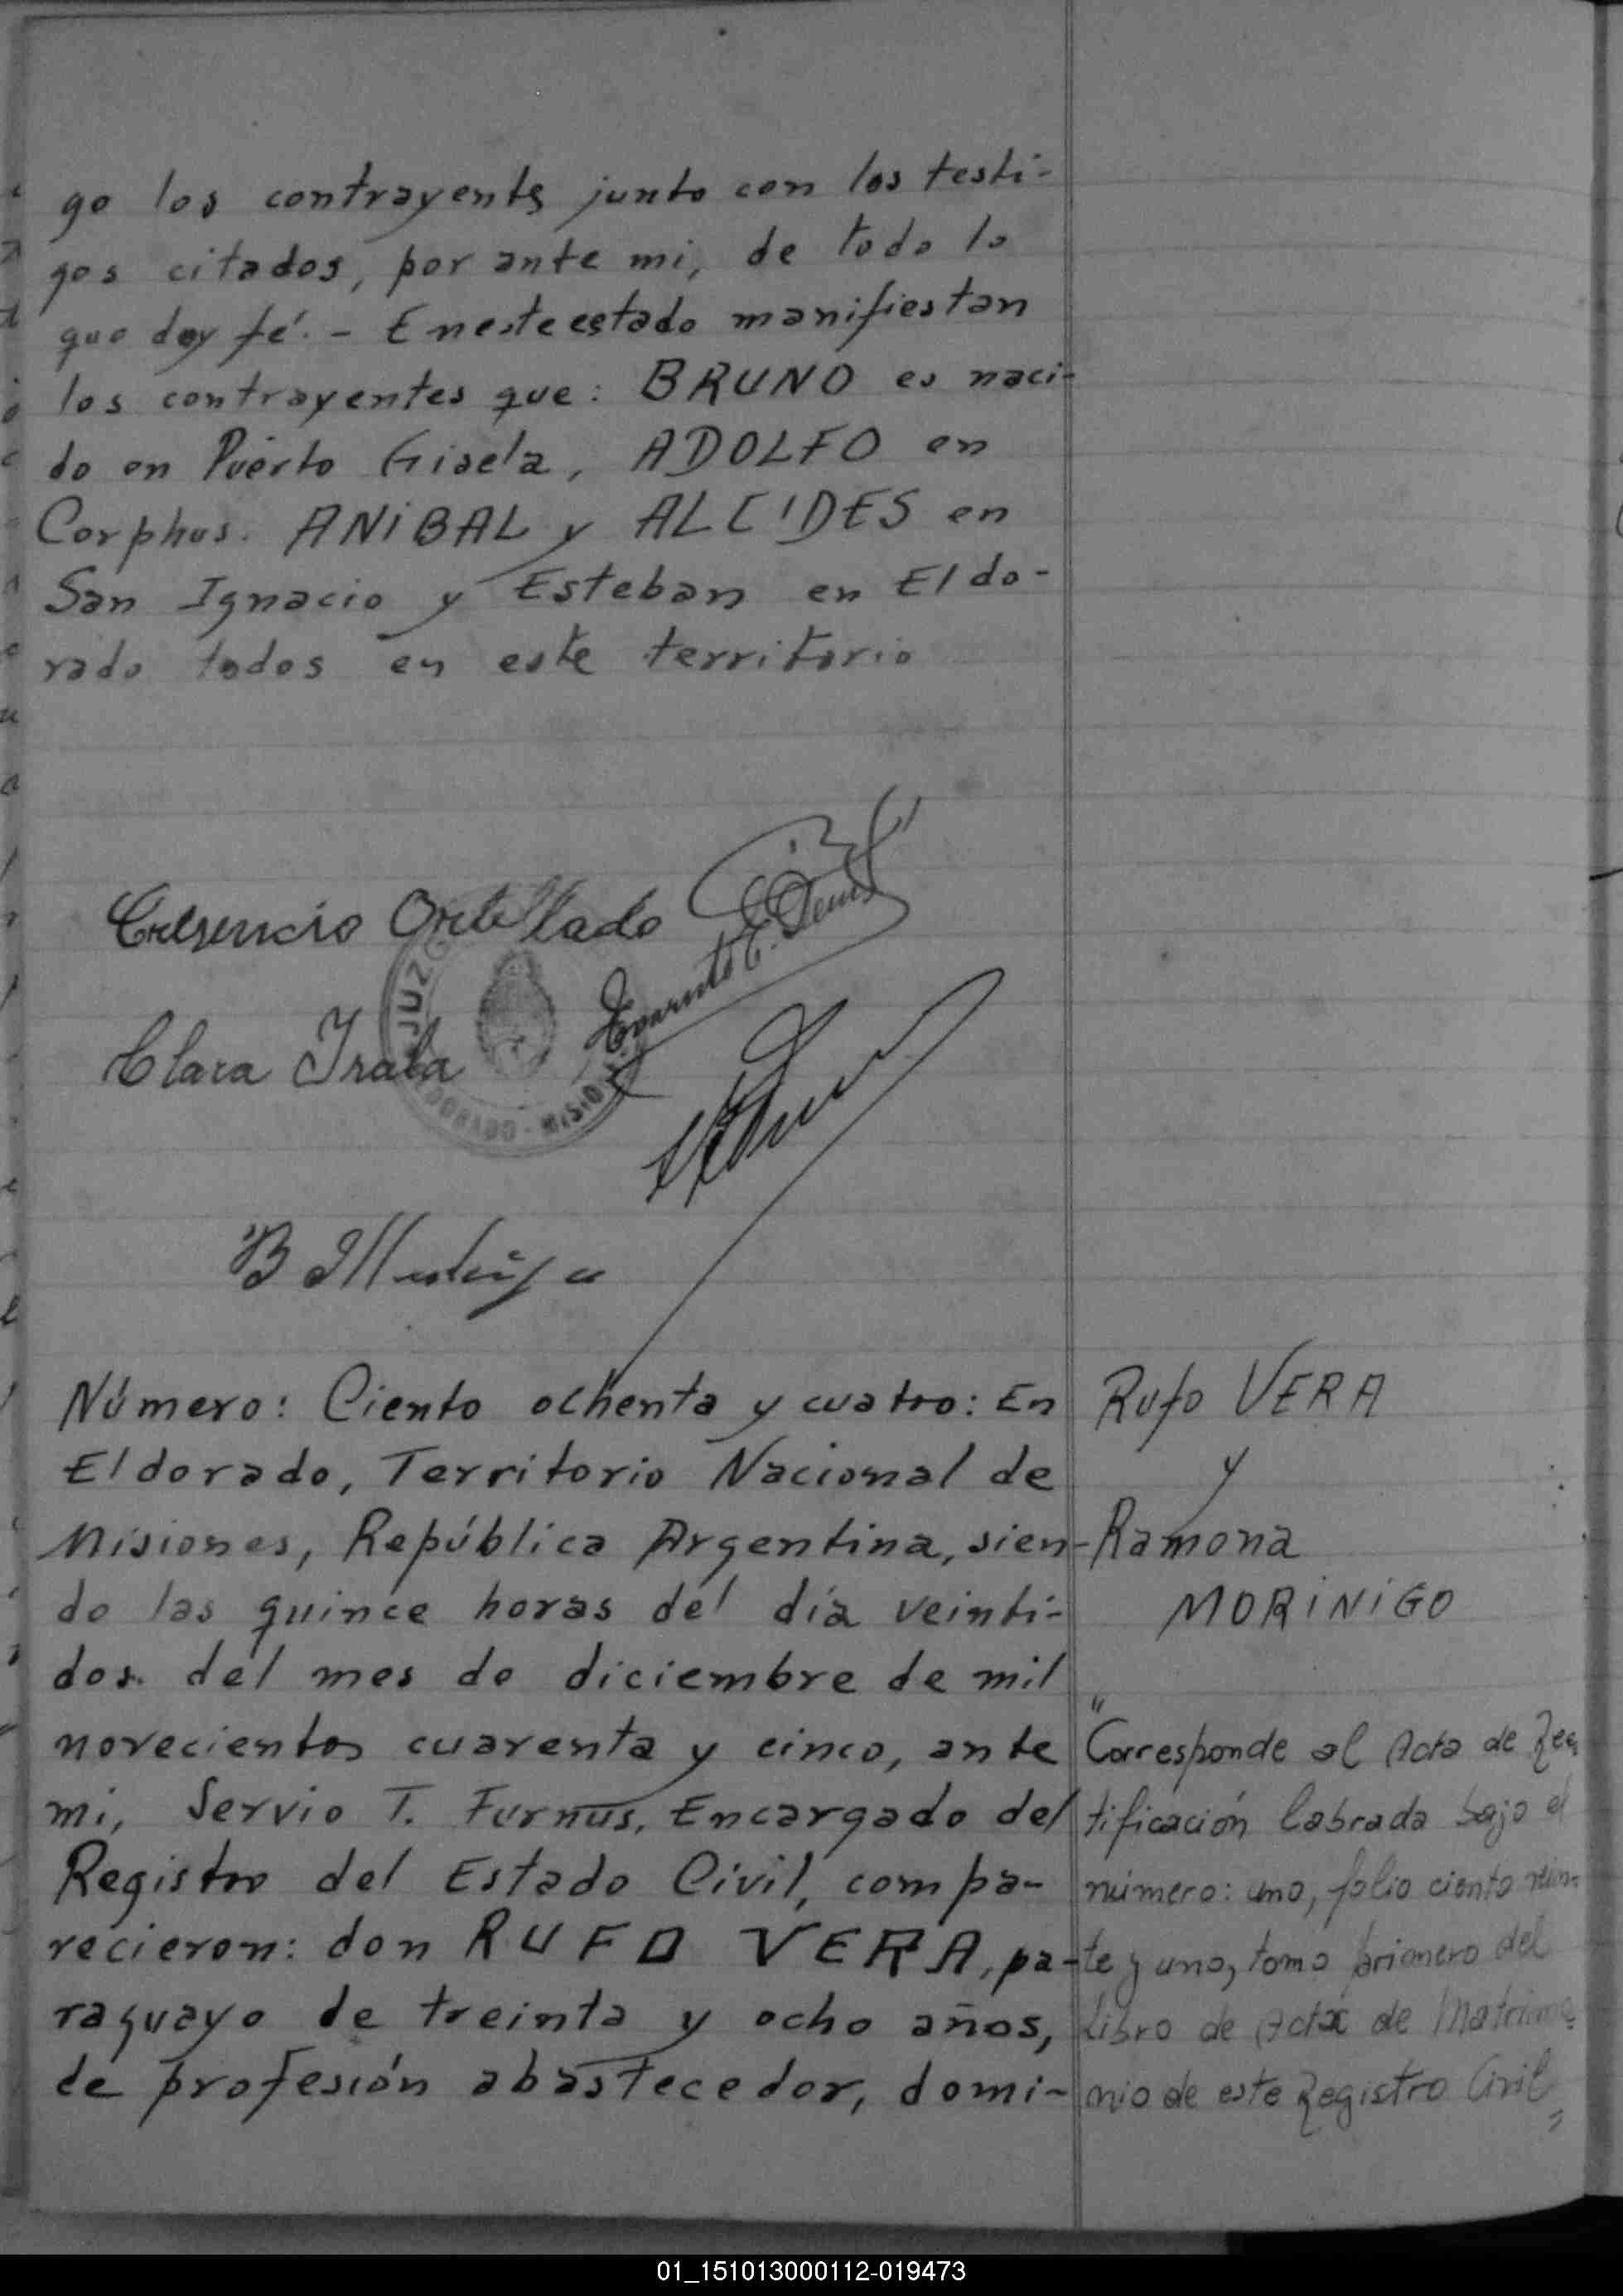 go los contrayents junto con los testi-
gos citados, por ante mi, de todo lo
que doy fé. - En este estado manifiestan
los contrayentes que: BRUNO es naci-
do en Puerto Gisela, ADOLFO en
Corphus. ANiBAL y ALCIDES en
San Ignacio y Esteban en Eldo-
rado todos en este territorio
Cresencio Ortellado
Evaristo E. Denis
JUZG
Clara Irala
ELDORADO - MISIO
Número: Ciento ochenta y cuatro: En
Eldorado, Territorio Nacional de
Misiones, República Argentina, sien-
do las quince horas del día veinti-
dos del mes de diciembre de mil
novecientos cuarenta y cinco, ante
mi, Servio T. Furnus, Encargado del
Registro del Estado Civil, compa-
recieron: don RUFO VERA, pa-
raguayo de treinta y ocho años,
de profesión abastecedor, domi-
Rufo VERA
y
Ramona
MORiNiGO
"Corresponde al Acta de Rec-
tificación labrada bajo el
número: uno, folio ciento vein-
te y uno, tomo primero del
Libro de Acta de Matrimo-
nio de este Registro Civil=
01_151013000112-019473